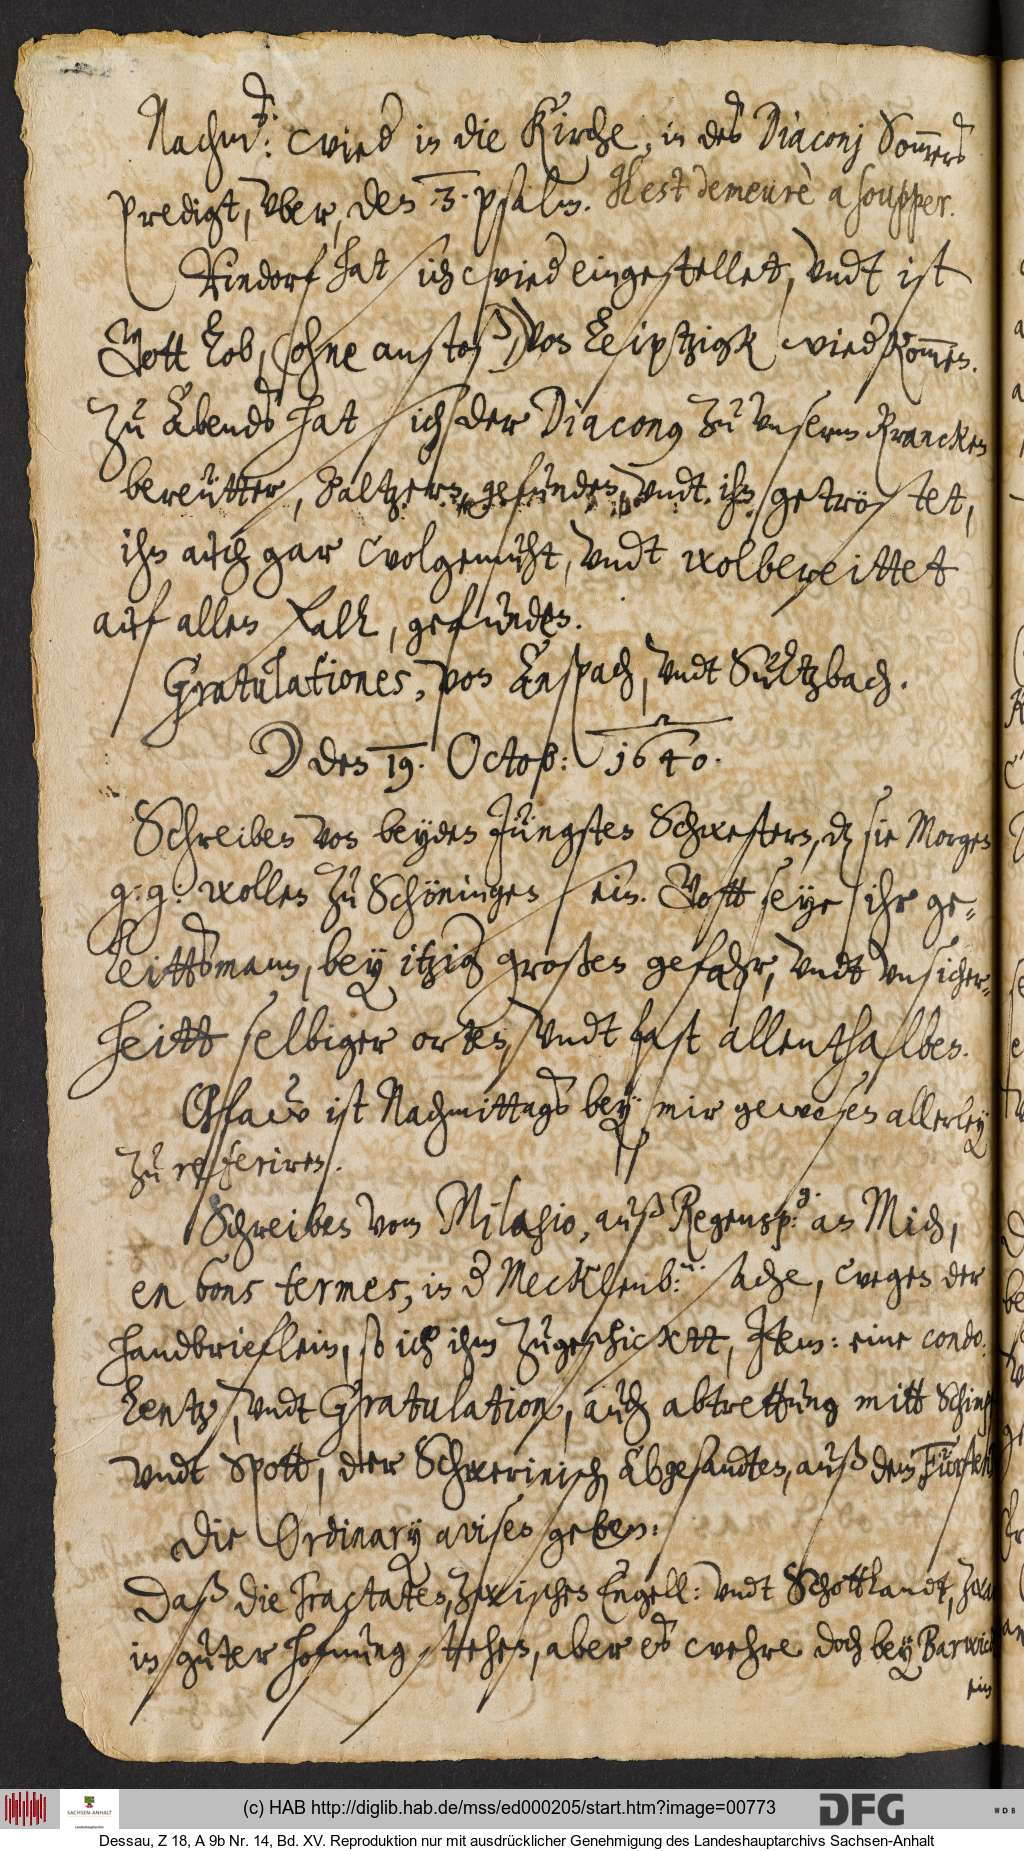 Nachm: wied in die Kirche, in des Diaconj Sommers
predigt, vber, den 3. psalm. Il est demeurè a soupper.
Rindorf hat sich wied eingestellet, vndt ist
Gott lob, (ohne anstoß) von Leiptzigk wied kommen.
Zu Abends hat sich der Diaconus zu vnserm krancken
bereütter, Baltzern, gefunden, vndt ihn getröstet,
ihn auch gar wolgemuht, vndt wolbereittet
auf allen Fall, gefunden.
Gratulationes, von Anspach, vndt Sultzbach.
den 19. Octob: 1640.
Schreiben von beyden Jüngsten Schwestern, dz sie Morgen
g: g: wollen zu Schöningen sein. Gott seye ihr ge=
leittsmann, bey itzig großen gefahr, vndt vnsicher=
heitt selbiger orten, vndt fast allenthalben.
ist Nachmittags bey mir gewesen allerley
zu referiren.
Schreiben vom Milagio, auß Regensp: an Mich,
en bons termes, in d Mecklenb: sache, wegen der
handbrieflein, so ich ihm zugeschicktt, Item: eine condo:
lentz, vndt Gratulation, auch abtrettung mitt Schimpf
vndt Spott, der Schwerinisch Abgesandten, auß dem Fürsten
Die Ordinary avisen geben:
Daß die Tractaten, zwischen Engell: vndt Schottlandt, zwar
in guter hofnung stehen, aber es wehre doch bey Barwick
ein
(c) HAB http://diglib.hab.de/mss/ed000205/start.htm?image=00773
SACHSEN-ANHALT
Landeshauptarchiv
DFG
WDB
Dessau, Z 18, A 9b Nr. 14, Bd. XV. Reproduktion nur mit ausdrücklicher Genehmigung des Landeshauptarchivs Sachsen-Anhalt